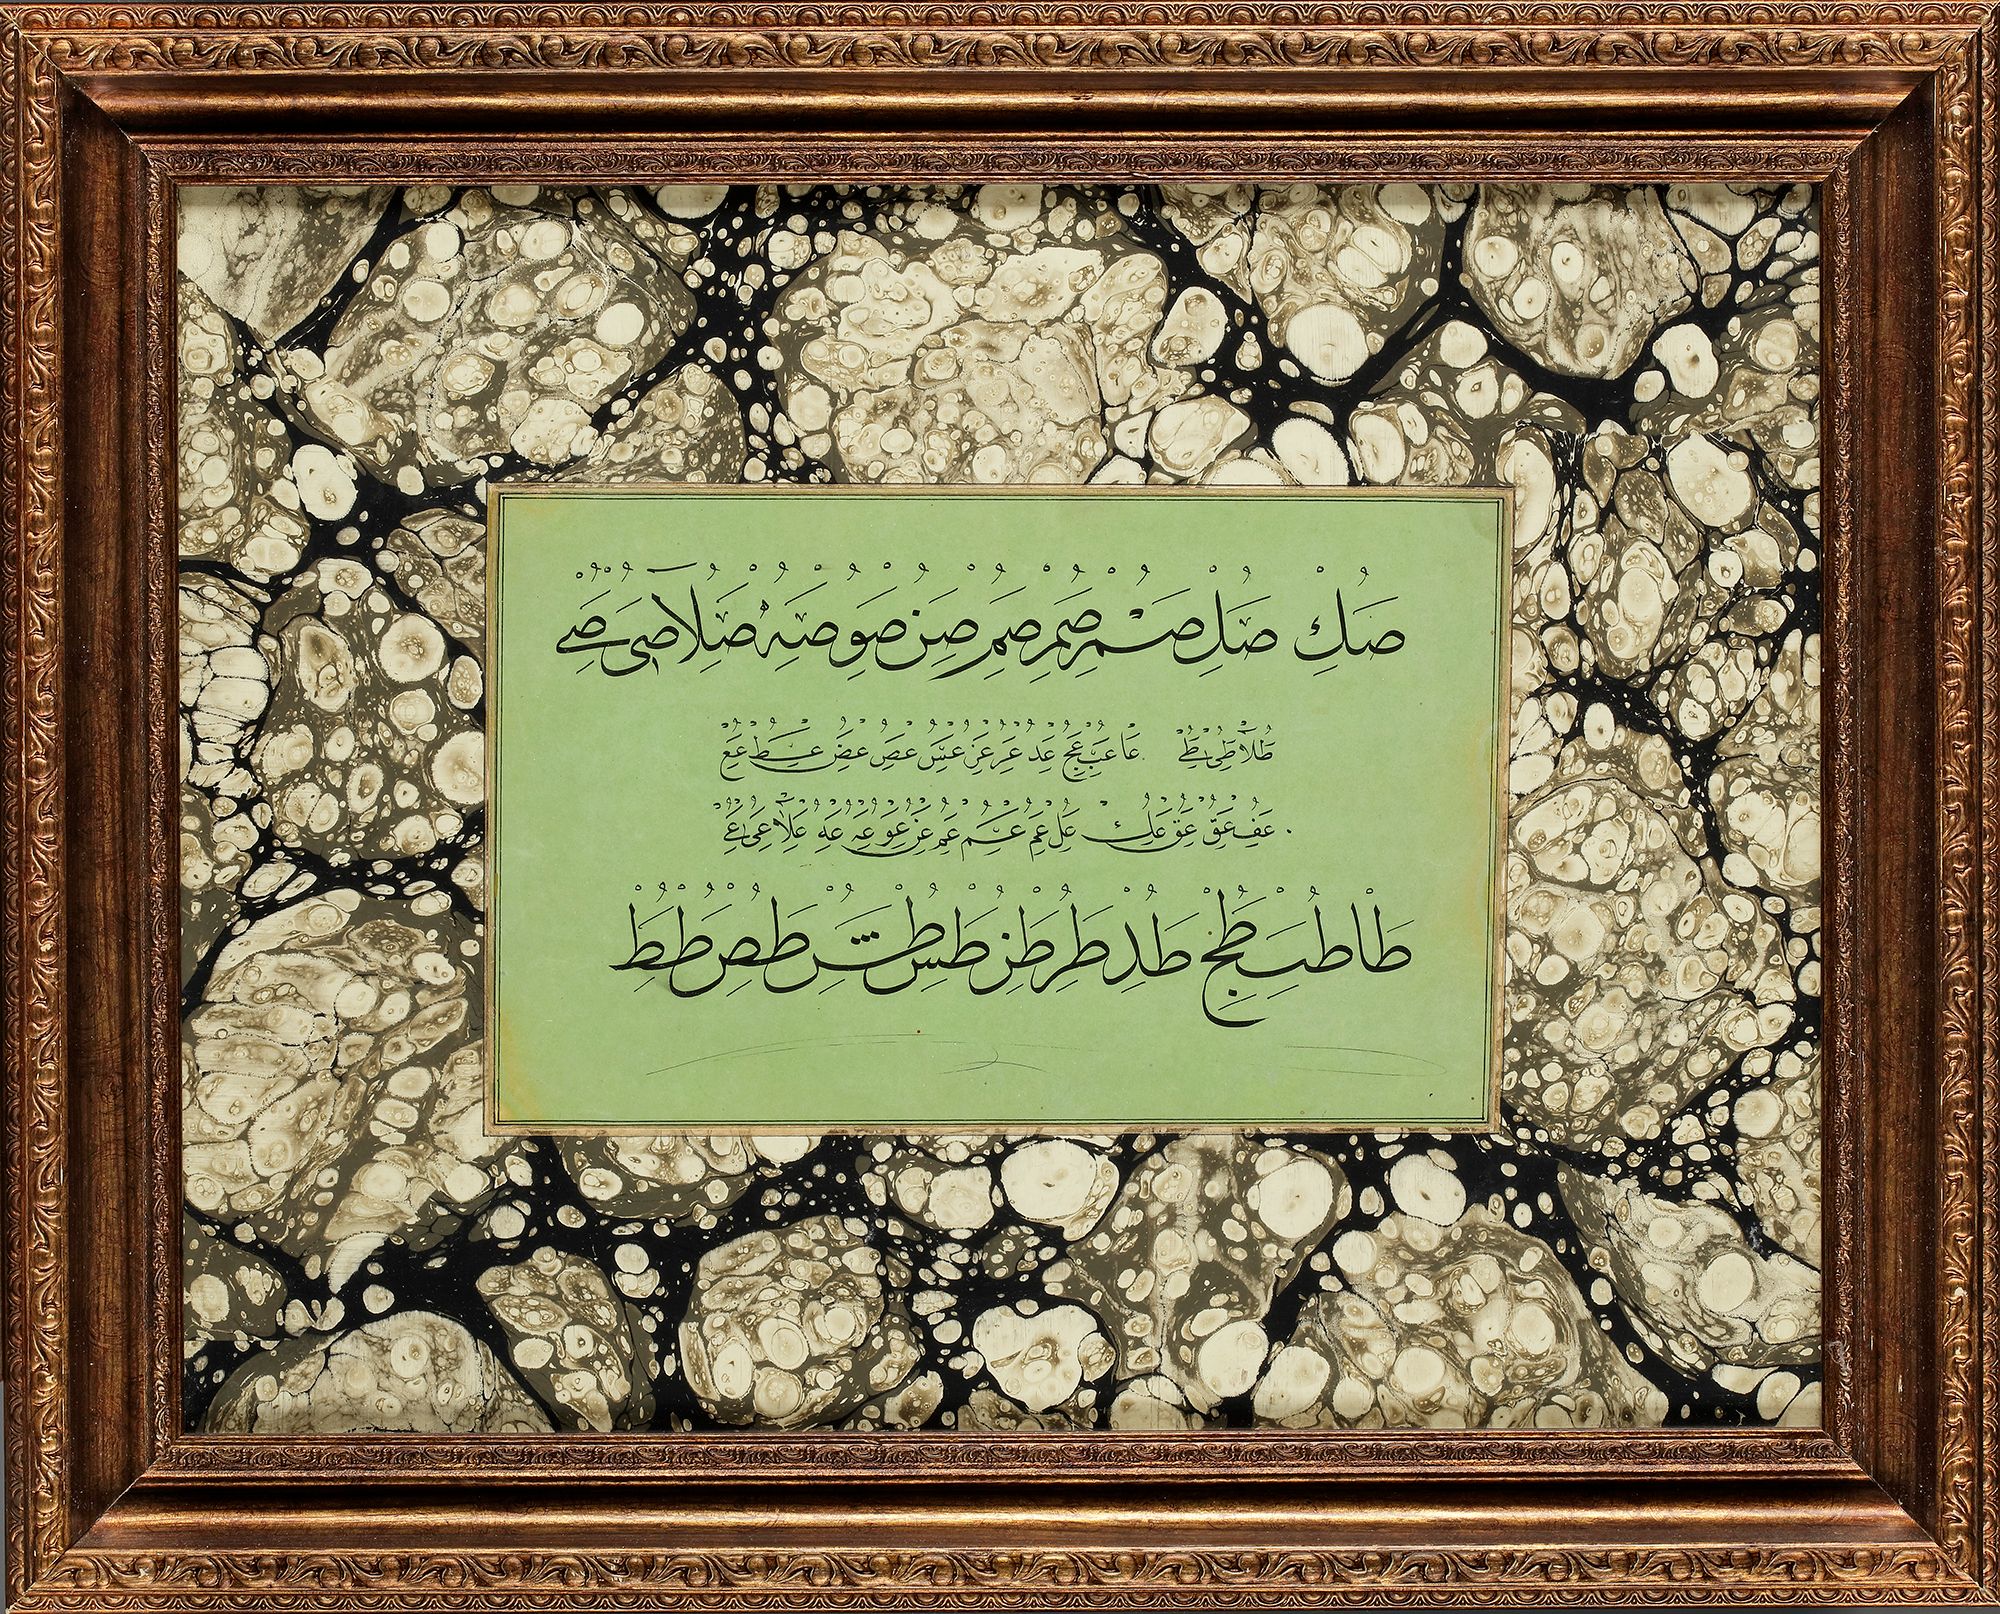 صك صل صم صم صم صن صو صه صه صلا صى صے
طلا طى طے عا عب عج عد عر عز عس عص عض عط عع
عف عق عق عك عل عم عم عم عن عو عه عه علا عى عے
طا طب طج طد طر طز طس طش طص طط